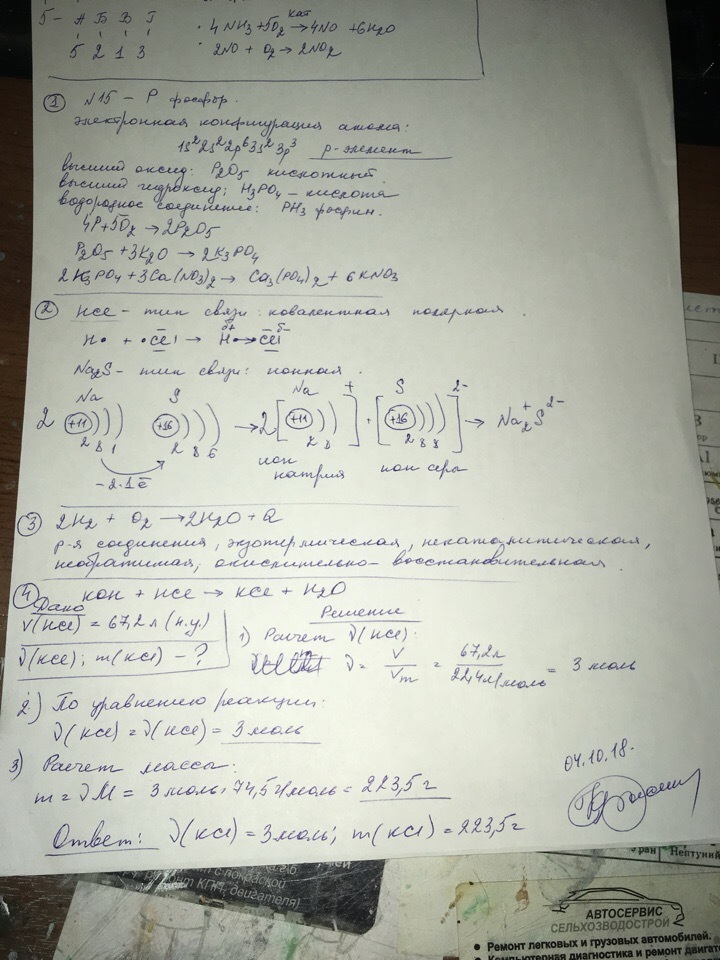 5- А Б В Г
5 2 1 3
· 4 NH3 + 5O2 кат→ 4NO + 6H2O
· 2NO + O2 → 2NO2
① N15 - P фосфор.
Электронная конфигурация атома:
1s² 2s² 2p⁶ 3s² 3p³ p-элемент
высший оксид: P2O5 кислотный.
высший гидроксид: H3PO4 - кислота
водородное соединение: PH3 фосфин.
4P + 5O2 → 2P2O5
P2O5 + 3K2O → 2K3PO4
2K3PO4 + 3Ca(NO3)2 → Ca3(PO4)2 + 6KNO3
② HCl - тип связи: ковалентная полярная.
H• + •Cl → Hδ+ → Clδ-
Na2S - тип связи: ионная.
Na S Na + S 2-
2 (+11))) (+16))) → 2 [(+11))] + [(+16)))] → Na2+ S2-
2 8 1 2 8 6 2 8 2 8 8
-2·1ē ион натрия ион серы
③ 2H2 + O2 → 2H2O + Q
р-я соединения, экзотермическая, некаталитическая,
необратимая, окислительно-восстановительная.
④ KOH + HCl → KCl + H2O
Дано
V(HCl) = 67,2 л (н.у.)
ν(KCl); m(KCl) - ?
Решение
1) Расчет ν(HCl):
ν = V/Vm = 67,2л/22,4л/моль = 3 моль
2) По уравнению реакции:
ν(KCl) = ν(HCl) = 3 моль
3) Расчет массы:
m = νM = 3 моль · 74,5 г/моль = 223,5 г
04.10.18.
Ответ: ν(KCl) = 3 моль; m(KCl) = 223,5 г
Нептуний
АВТОСЕРВИС
СЕЛЬХОЗВОДСТРОИ
• Ремонт легковых и грузовых автомобилей.
• Компьютерная диагностика и ремонт двигате